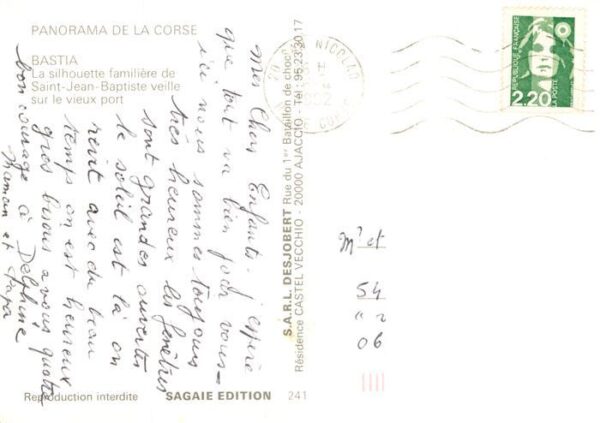 PANORAMA DE LA CORSE
BASTIA
La silhouette familière de
Saint-Jean-Baptiste veille
sur le vieux port
mes Chers Enfants. j'espère
que tout va bien pour vous
ici nous sommes toujours
très heureux les fenêtres
sont grandes ouvertes
le soleil est là on
revit avec du beau
temps on est heureux
gros bisous a vous quatre
bon courage à Delphine
maman et Papa
S.A.R.L. DESJOBERT Rue du 1er Bataillon de choc
Résidence CASTEL VECCHIO - 20000 AJACCIO - Tél : 95.23.30.17
NICOLAO
RÉPUBLIQUE FRANÇAISE
2,20
LA POSTE
Mr et
54
06
Reproduction interdite
SAGAIE EDITION
241